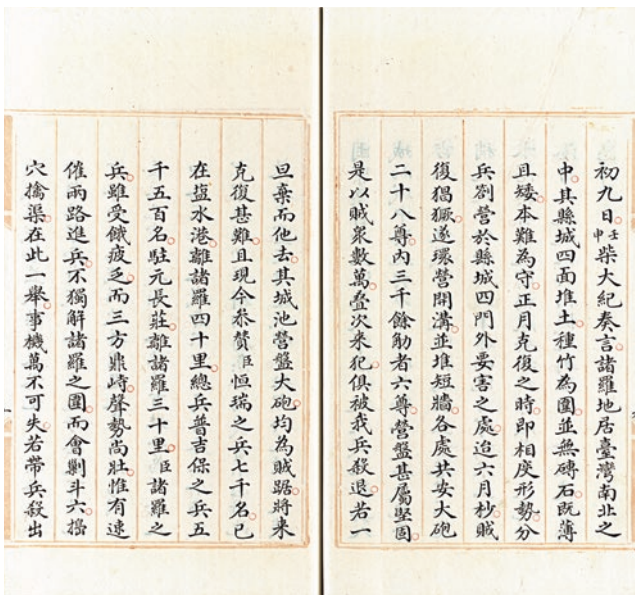 初九日壬申柴大紀奏言諸羅地居臺灣南北之
中其縣城四面堆土種竹為圍並無磚石既薄
且矮本難為守正月克復之時即相度形勢分
兵劄營於縣城四門外要害之處迨六月杪賊
復猖獗遂環營開溝並堆短牆各處共安大砲
二十八尊內三千餘觔者六尊營盤甚屬堅固
是以賊衆數萬叠次来犯俱被我兵殺退若一
旦棄而他去其城池營盤大砲均為賊踞將来
克復甚難且現今叅贊臣恒瑞之兵七千名已
在塩水港離諸羅四十里總兵普吉保之兵五
千五百名駐元長莊離諸羅三十里臣諸羅之
兵雖受餓疲乏而三方鼎峙聲勢尚壯惟有速
催兩路進兵不獨解諸羅之圍而會剿斗六搗
穴擒渠在此一舉事機萬不可失若帶兵殺出